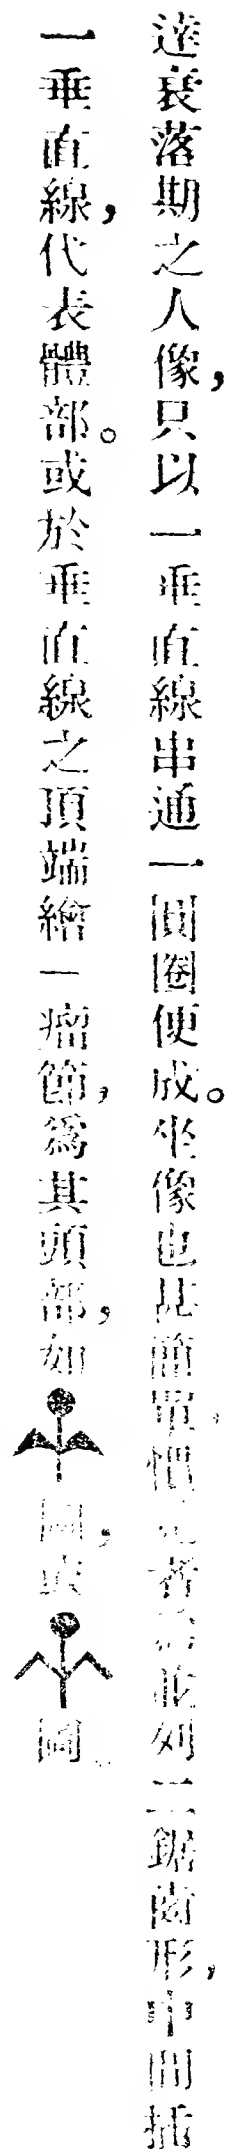 達衰落期之人像，只以一垂直線串通一圓圈便成。坐像也甚簡單。慣見者為並列二鋸齒形，中間插
一垂直線，代表體部。或於垂直線之頂端繪一瘤節，為其頭部，如圖，或圖。